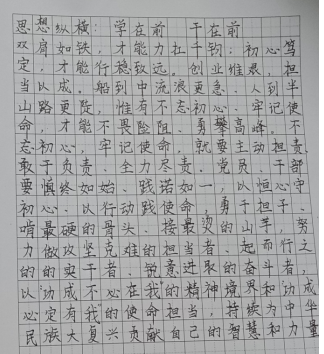 思想纵横：学在前 干在前
双肩如铁，才能力扛千钧；初心笃
定，才能行稳致远。创业维艰，担
当以成。船到中流浪更急、人到半
山路更陡，惟有不忘初心、牢记使
命，才能不畏险阻、勇攀高峰。不
忘初心，牢记使命，就要主动担责、
敢于负责、全力尽责。党员、干部
要慎终如始、践诺如一，以恒心守
初心、以行动践使命，勇于担子、
啃最硬的骨头、接最烫的山芋，努
力做攻坚克难的担当者、起而行之
的的实干者、锐意进取的奋斗者，
以“功成不必在我”的精神境界和“功成
必定有我”的使命担当，持续为中华
民族大复兴贡献自己的智慧和力量